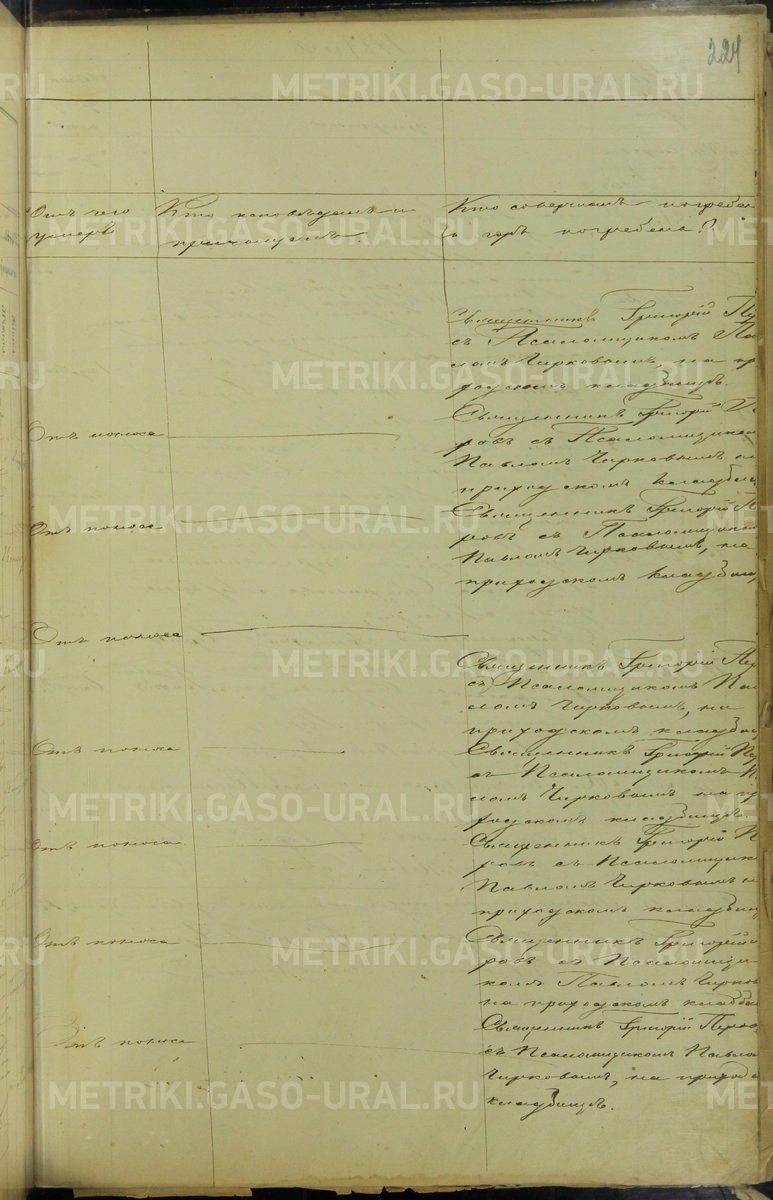 224
Отъ чего
умеръ
Кто исповѣдалъ и
пріобщалъ.
Кто совершалъ погребен
и гдѣ погребены?
Священникъ Григорій
съ Псаломщикомъ Пав
ломъ Чирковымъ, на при
ходскомъ кладбищѣ.
Отъ поноса
Священникъ Григорій
ровъ съ Псаломщикомъ
Павломъ Чирковымъ на
приходскомъ кладби
Отъ поноса
Священникъ Григорій
ровъ съ Псаломщико
Павломъ Чирковымъ, на
приходскомъ кладбищ
Отъ поноса
Священникъ Григорій
съ Псаломщикомъ Пав
ломъ Чирковымъ, на
приходскомъ кладби
Отъ поноса
Священникъ Григорій
съ Псаломщикомъ
ломъ Чирковымъ на пр
ходскомъ кладбищѣ.
Отъ поноса
Священникъ Григорій
ровъ съ Псаломщик
Павломъ Чирковымъ
приходскомъ кладбищ
Отъ поноса
Священникъ Григорій
ровъ съ Псаломщи
комъ Павломъ Чирков
на приходскомъ кладби
Отъ поноса
Священникъ Григорій
съ Псаломщикомъ Павло
Чирковымъ, на приход
кладбищѣ.
METRIKI.GASO-URAL.RU